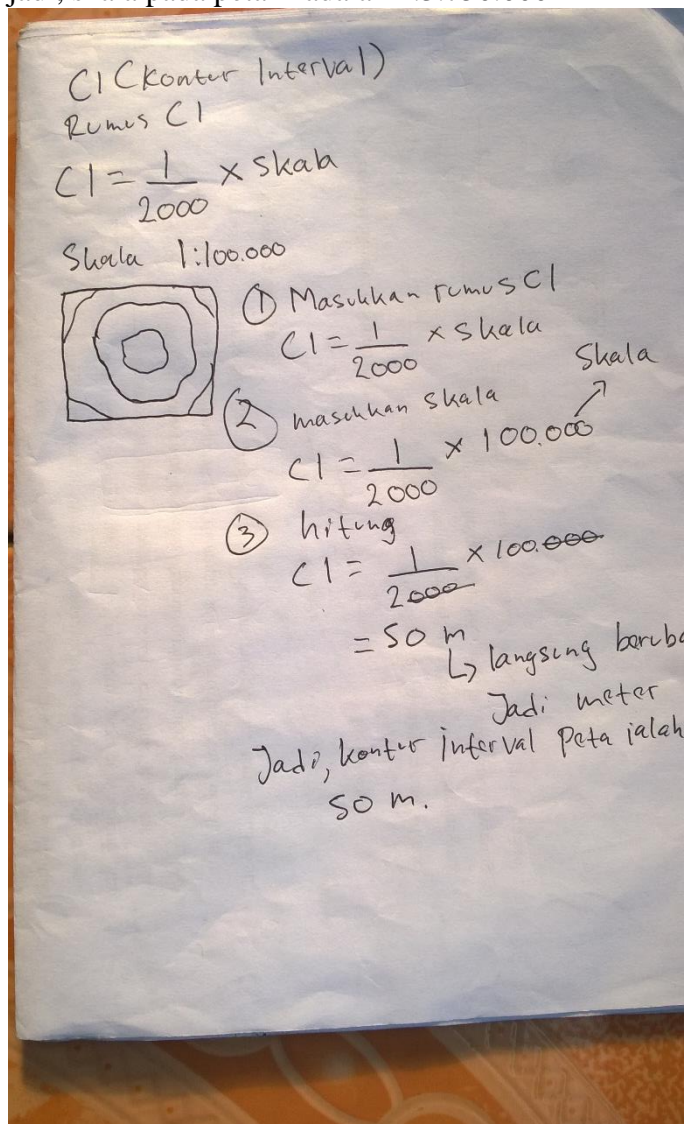 CI (Kontur Interval)
Rumus CI
CI = 1/2000 × Skala
Skala 1:100.000
① Masukkan rumus CI
CI = 1/2000 × skala
Skala
② masukkan skala
CI = 1/2000 × 100.000
③ hitung
CI = 1/2000 × 100.000
= 50 m
↳ langsung
Jadi meter
Jadi, kontur interval Peta ialah
50 m.